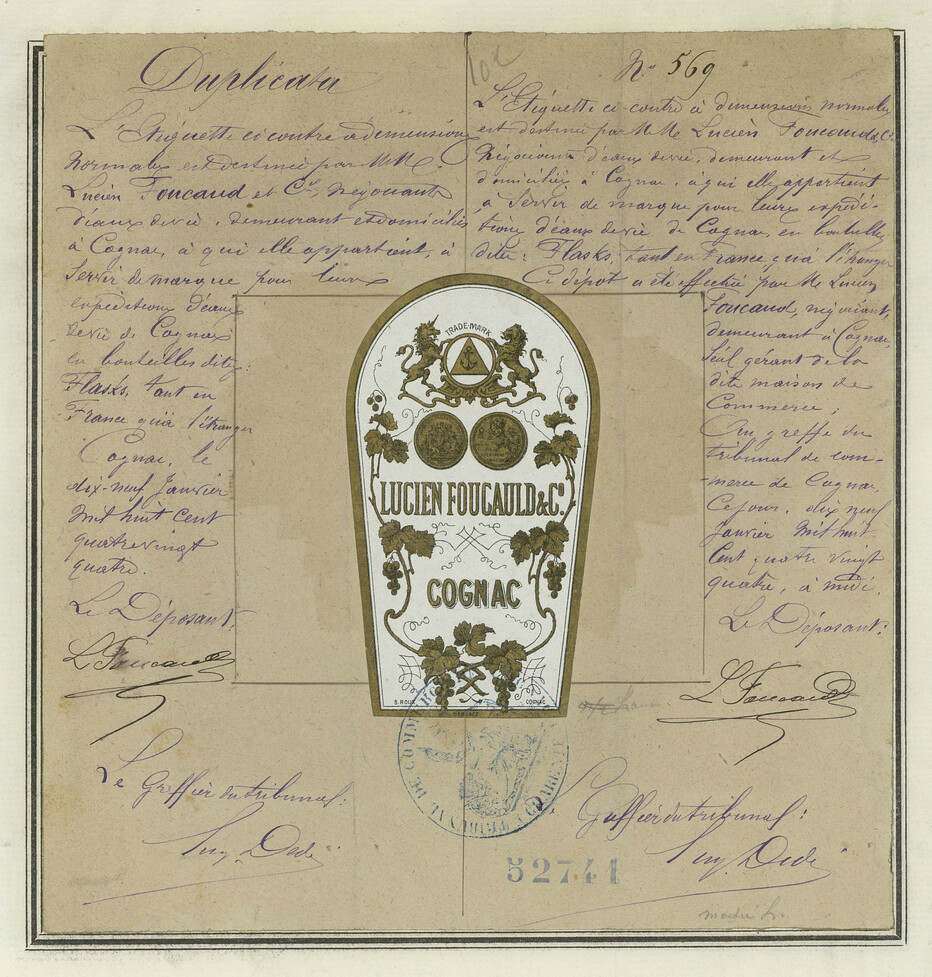 Duplicata
L'Etiquette ci contre a demensions
normales est destinée par M.M.
Lucien Foucauld et Cie, négociants
d'eaux de vie, demeurant et domiciliés
à Cognac, à qui elle appartient, à
servir de marque pour leurs
expéditions d'eaux
de vie de Cognac
en bouteilles dites:
Flasks, tant en
France qu'à l'étranger
Cognac, le
dix-neuf Janvier
mil huit cent
quatre vingt
quatre.
Le Déposant:
L Foucauld
Le Greffier du tribunal:
N° 569
L'Etiquette ci-contre à demensions normales
est destinée par M.M. Lucien Foucauld & Cie
négociants d'eaux de vie, demeurant et
domiciliés à Cognac, à qui elle appartient
à servir de marque pour leurs expédi-
tions d'eaux de vie de Cognac, en bouteilles
dites: Flasks, tant en France qu'à l'étranger
Ce dépôt a été effectué par M. Lucien
Foucauld, négociant,
demeurant à Cognac,
seul gérant de la
dite maison de
Commerce;
Au greffe du
tribunal de com-
merce de Cognac,
Ce jour, dix neuf
Janvier mil huit
cent quatre vingt
quatre, à midi.
Le Déposant:
L Foucauld
Greffier du tribunal:
TRADE-MARK
LUCIEN FOUCAULD & Co.
COGNAC
B. ROUX
COGNAC
52741